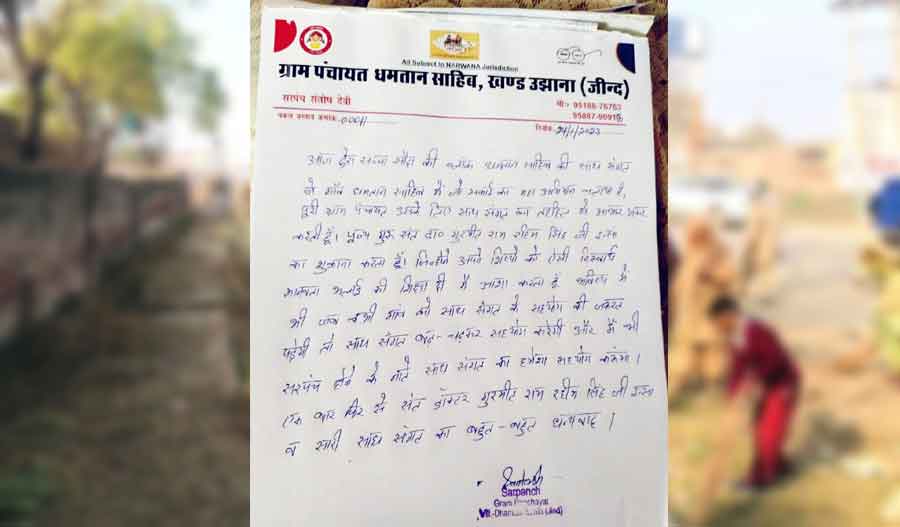 All Subject to NARWANA Jurisdiction
ग्राम पंचायत धमतान साहिब, खण्ड उझाना (जीन्द)
सरपंच संतोष देवी
मो०
क्रमांक 00011
दिनांक 24/1/2023
आज डेरा सच्चा सौदा की ब्लॉक धमतान साहिब की साध संगत
ने गाँव धमतान साहिब में जो सफाई का महा अभियान चलाया है,
पूरी ग्राम पंचायत उसके लिए साध संगत का तहदिल से आभार व्यक्त
करती हूँ। पूज्य गुरु संत डा० गुरमीत राम रहीम सिंह जी इन्सां
का शुकराना करता हूँ। जिन्होंने अपने शिष्यों को ऐसी निस्वार्थ
मानवता भलाई की शिक्षा दी मैं आशा करता हूँ भविष्य में
भी जब कभी गांव को साध संगत के सहयोग की जरूरत
पड़ेगी तो साध संगत बढ़-चढ़कर सहयोग करेगी और मैं भी
सरपंच होने के नाते साध संगत का हमेशा सहयोग करूंगा।
एक बार फिर से संत डॉक्टर गुरमीत राम रहीम सिंह जी इन्सां
व सारी साध संगत का बहुत-बहुत धन्यवाद।
Santosh
Sarpanch
Gram Panchayat
Vill.-Dhamtan Sahib (Jind)